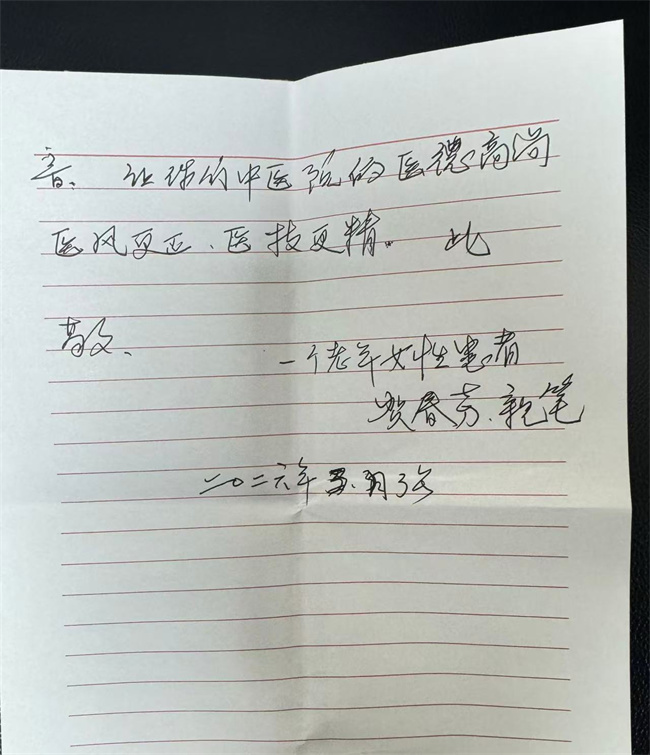 音、让你们中医院的医德高尚
医风更正、医技更精。 此
敬、
一个老年女性患者
贺春芳、亲笔
二〇二六年 五.月3号